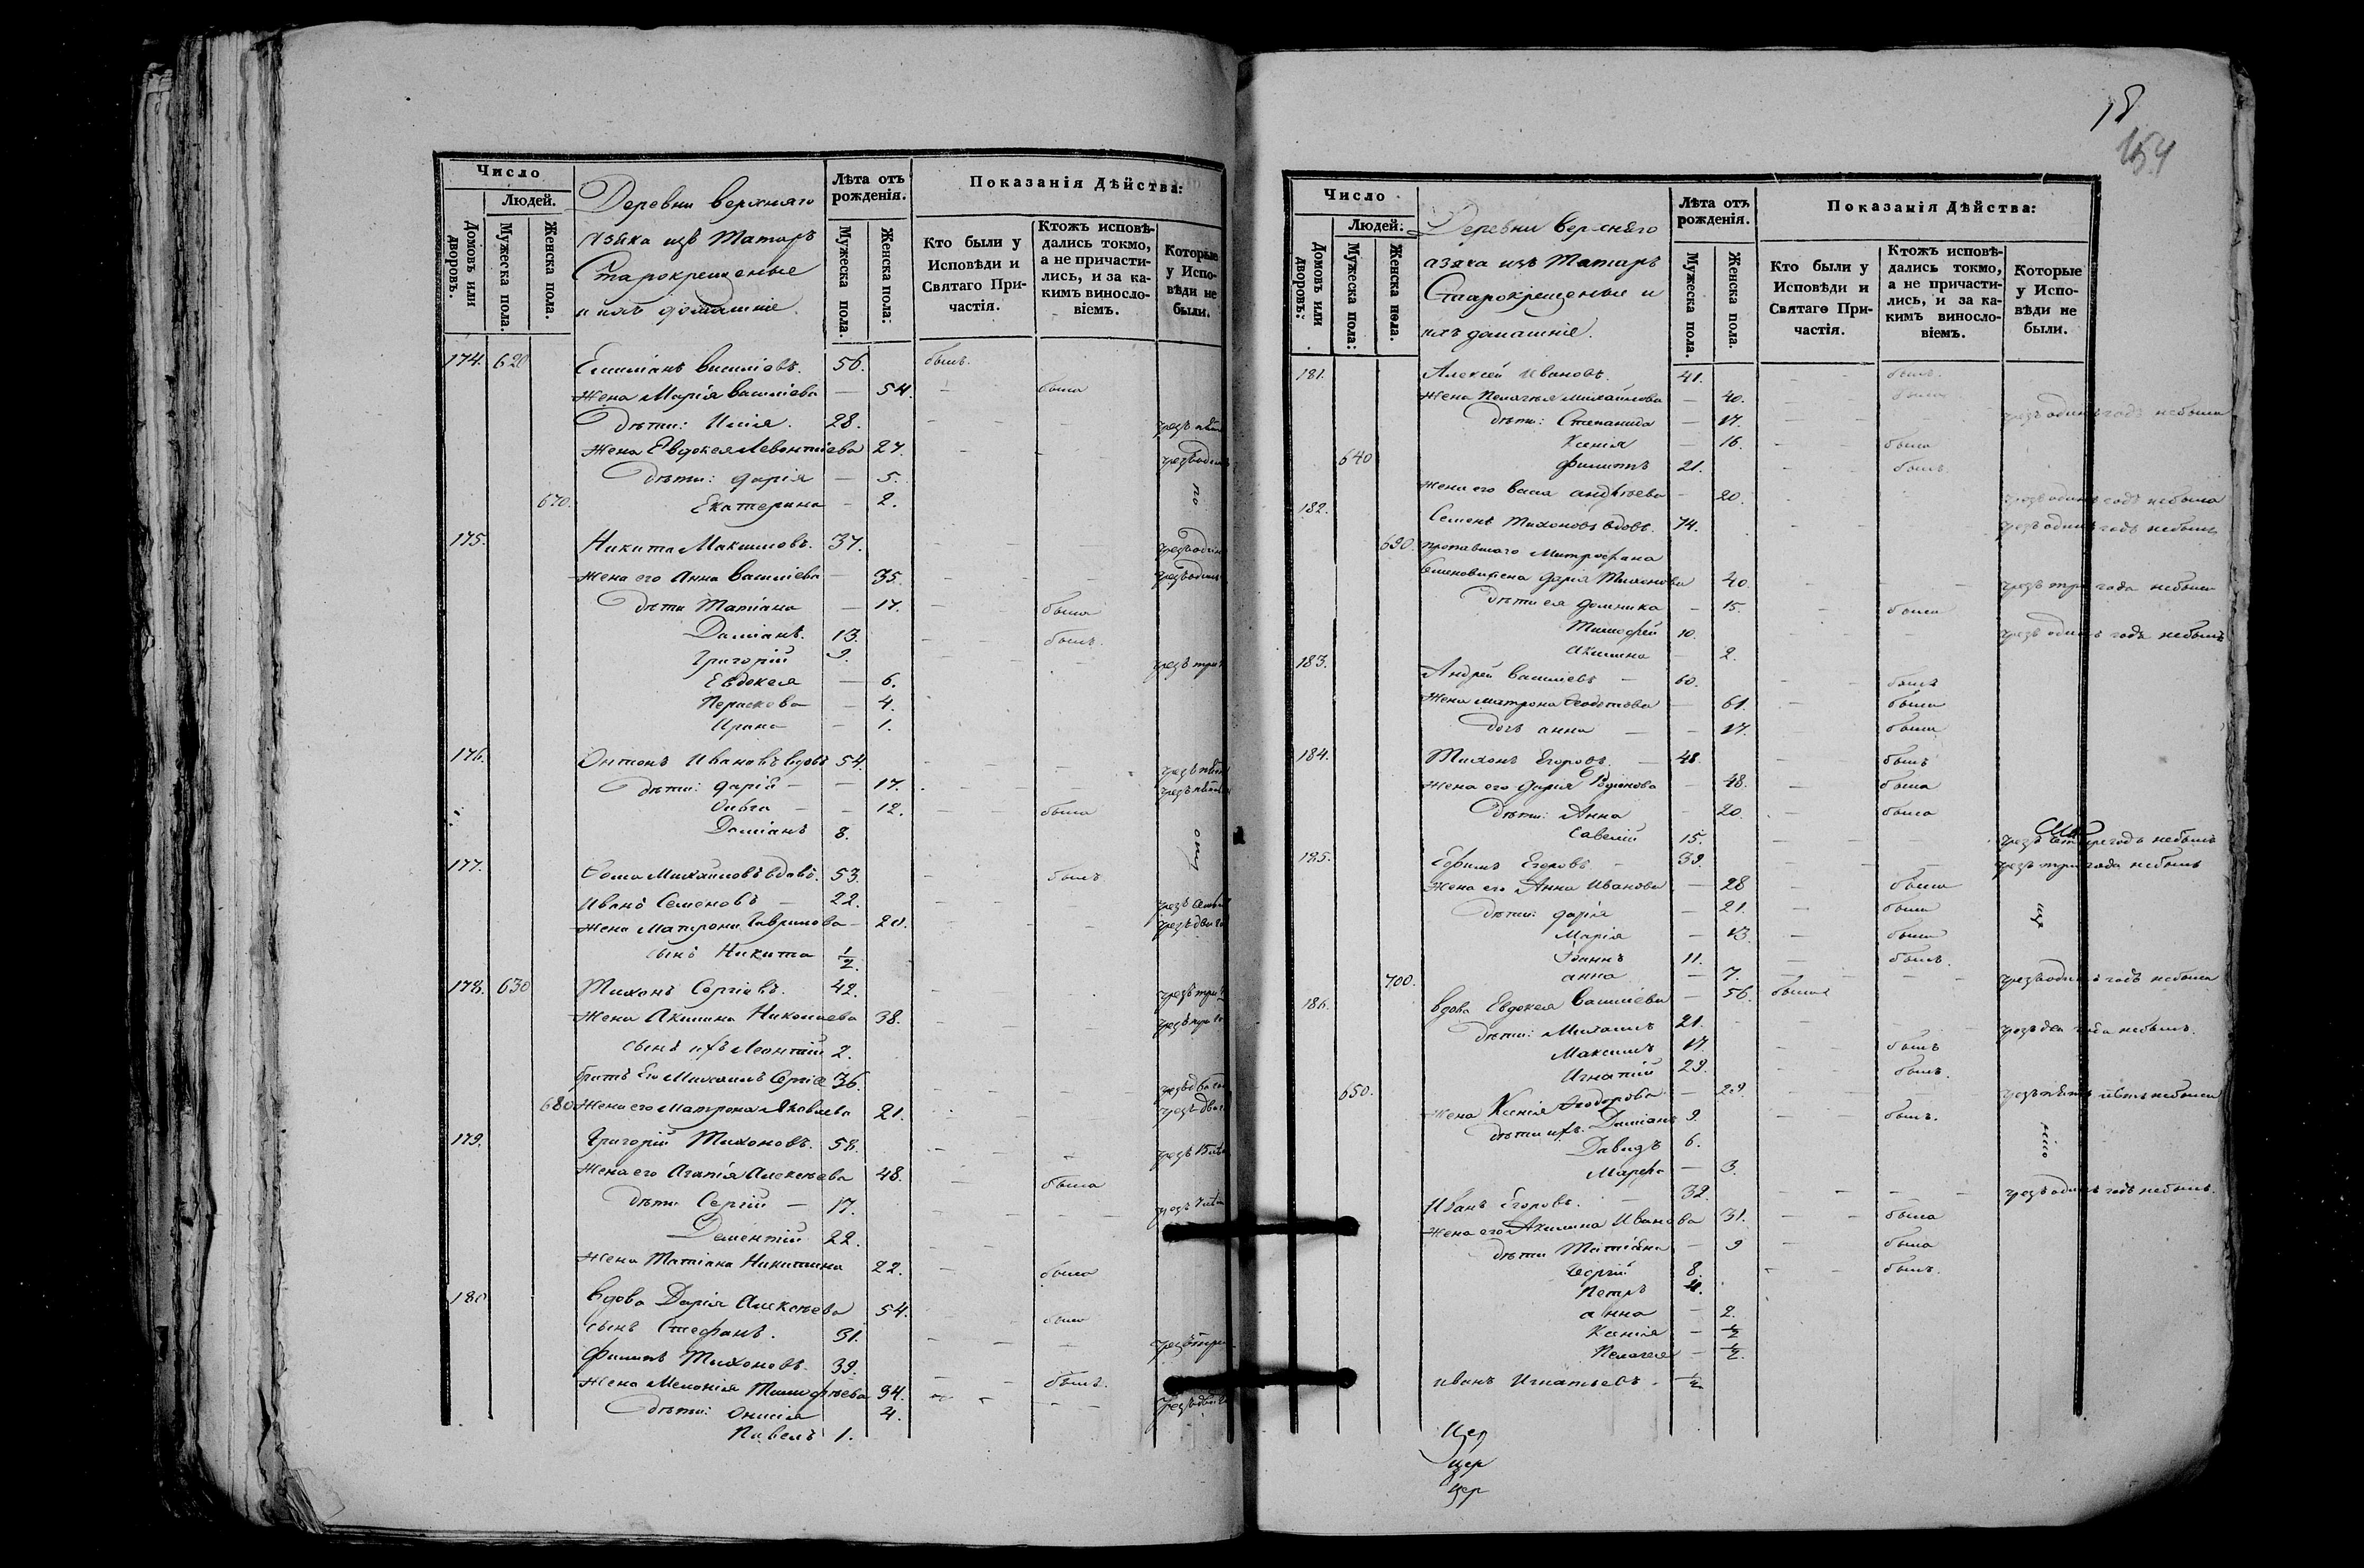 Число
Людей.
Домовъ или дворовъ.
Мужеска пола.
Женска пола.
Деревни верхняго
Азяка изъ Татаръ
Старокрещеные
и ихъ домашніе.
Лѣта отъ рожденія.
Мужеска пола.
Женска пола:
Показанія Дѣйства:
Кто были у Исповѣди и Святаго Причастія.
Ктожъ исповѣдались токмо, а не причастились, и за какимъ винословіемъ.
Которые у Исповѣди не были.
174. 620 Василіевъ. 56. былъ.
Жена Марія Василіева — 54. была
Дѣти: Илія. 28.
Жена Евдокея Левонтіева 27. чрезъ один
Дѣти: Дарія — 5.
670. Екатерина — 2. по
175. Никита Максимовъ. 37. чрезъ один
Жена его Анна Василіева — 35. чрезъ один
Дѣти Татіана — 17. была
Даміанъ. 13. былъ.
Григорій 9. чрезъ три
Евдокея — 6.
Параскева — 4.
Ирина — 1.
176. Антонъ Ивановъ вдовъ 54.
Дѣти: Дарія — 17.
Ольга — 12. была
Даміанъ 8.
177. Михайловъ вдовъ. 53. былъ.
Иванъ Семеновъ — 22.
Жена Матрона Гаврилова — 20. чрезъ два го
сынъ Никита ½.
178. 630 Тихонъ Сергіевъ. 42. чрезъ три
Жена Акилина Николаева 38. чрезъ три го
сынъ ихъ Леонтій 2.
братъ Его Михаилъ Сергіе 36. чрезъ два го
680 Жена его Матрона Яковлева 21. чрезъ два
179. Григорій Тихоновъ. 58.
Жена его Агапія Алексѣева 48. была
Дѣти Сергій — 17.
Дементій 22.
Жена Татіана Никитина 22. была
180 Вдова Дарія Алексѣева 54. была
сынъ Стефанъ. 31. чрезъ три
Филипъ Тихоновъ. 39.
Жена Тимофѣева 34. былъ.
Дѣти: 4.
Павелъ 1.
18
154
Число
Людей:
Домовъ или дворовъ:
Мужеска пола:
Женска пола.
Деревни верхняго
азяка изъ Татаръ
Старокрещеные и
ихъ домашніе.
Лѣта отъ рожденія.
Мужеска пола.
Женска пола.
Показанія Дѣйства:
Кто были у Исповѣди и Святаго Причастія.
Ктожъ исповѣдались токмо, а не причастились, и за какимъ винословіемъ.
Которые у Исповѣди не были.
181. Алексей Ивановъ. 41. былъ.
Жена Пелагея Михайлова — 40. была
Дѣти: Степанида — 17. чрезъ одинъ годъ небыла
Ксенія — 16. была
640 Филипъ 21. былъ.
Жена его Васса Андрѣева — 20. чрезъ одинъ годъ небыла
182. Семенъ Тихоновъ вдовъ. 74. чрезъ одинъ годъ небылъ
690. пропавшаго Митрофана
Семенова жена Дарія Тихонова 40. чрезъ три года небыла
Дѣти ея Домника — 15. была
Тимофей 10. чрезъ одинъ годъ небылъ
Акилина — 2.
183. Андрей Василіевъ — 60. былъ
Жена Матрона Ѳедотова — 61. была
дочь анна — 17. была
184. Тихонъ Егоровъ. — 48. былъ
Жена его Дарія Родіонова — 48. была
Дѣти: Анна — 20. была
Савелій 15. небылъ
185. Ефимъ Егоровъ — 39. чрезъ три года небылъ
Жена его Анна Иванова — 28 была
дѣти: Дарія — 21. была
Марія — 13. была
Іоаннъ 11. былъ.
700. анна — 7. чрезъ одинъ годъ небыла
186. вдова Евдокея Василіева — 56. была
Дѣти: Михаилъ 21. чрезъ два года небылъ.
Максимъ 17. былъ
Игнатій 29. былъ.
650. Жена Ксенія Ѳеодорова — 29. чрезъ пять лѣтъ небыла
Дѣти ихъ Даміанъ 9. былъ.
Давидъ 6.
Марфа — 3.
Иванъ Егоровъ. — 32. чрезъ одинъ годъ небылъ.
Жена его Акилина Иванова 31. была
дѣти Татіана — 9 была
Сергій 8. былъ.
Петръ 4.
анна — 2.
Ксенія — ½
Пелагея — ½.
иванъ Игнатьевъ. ½
Цер
цер
цер